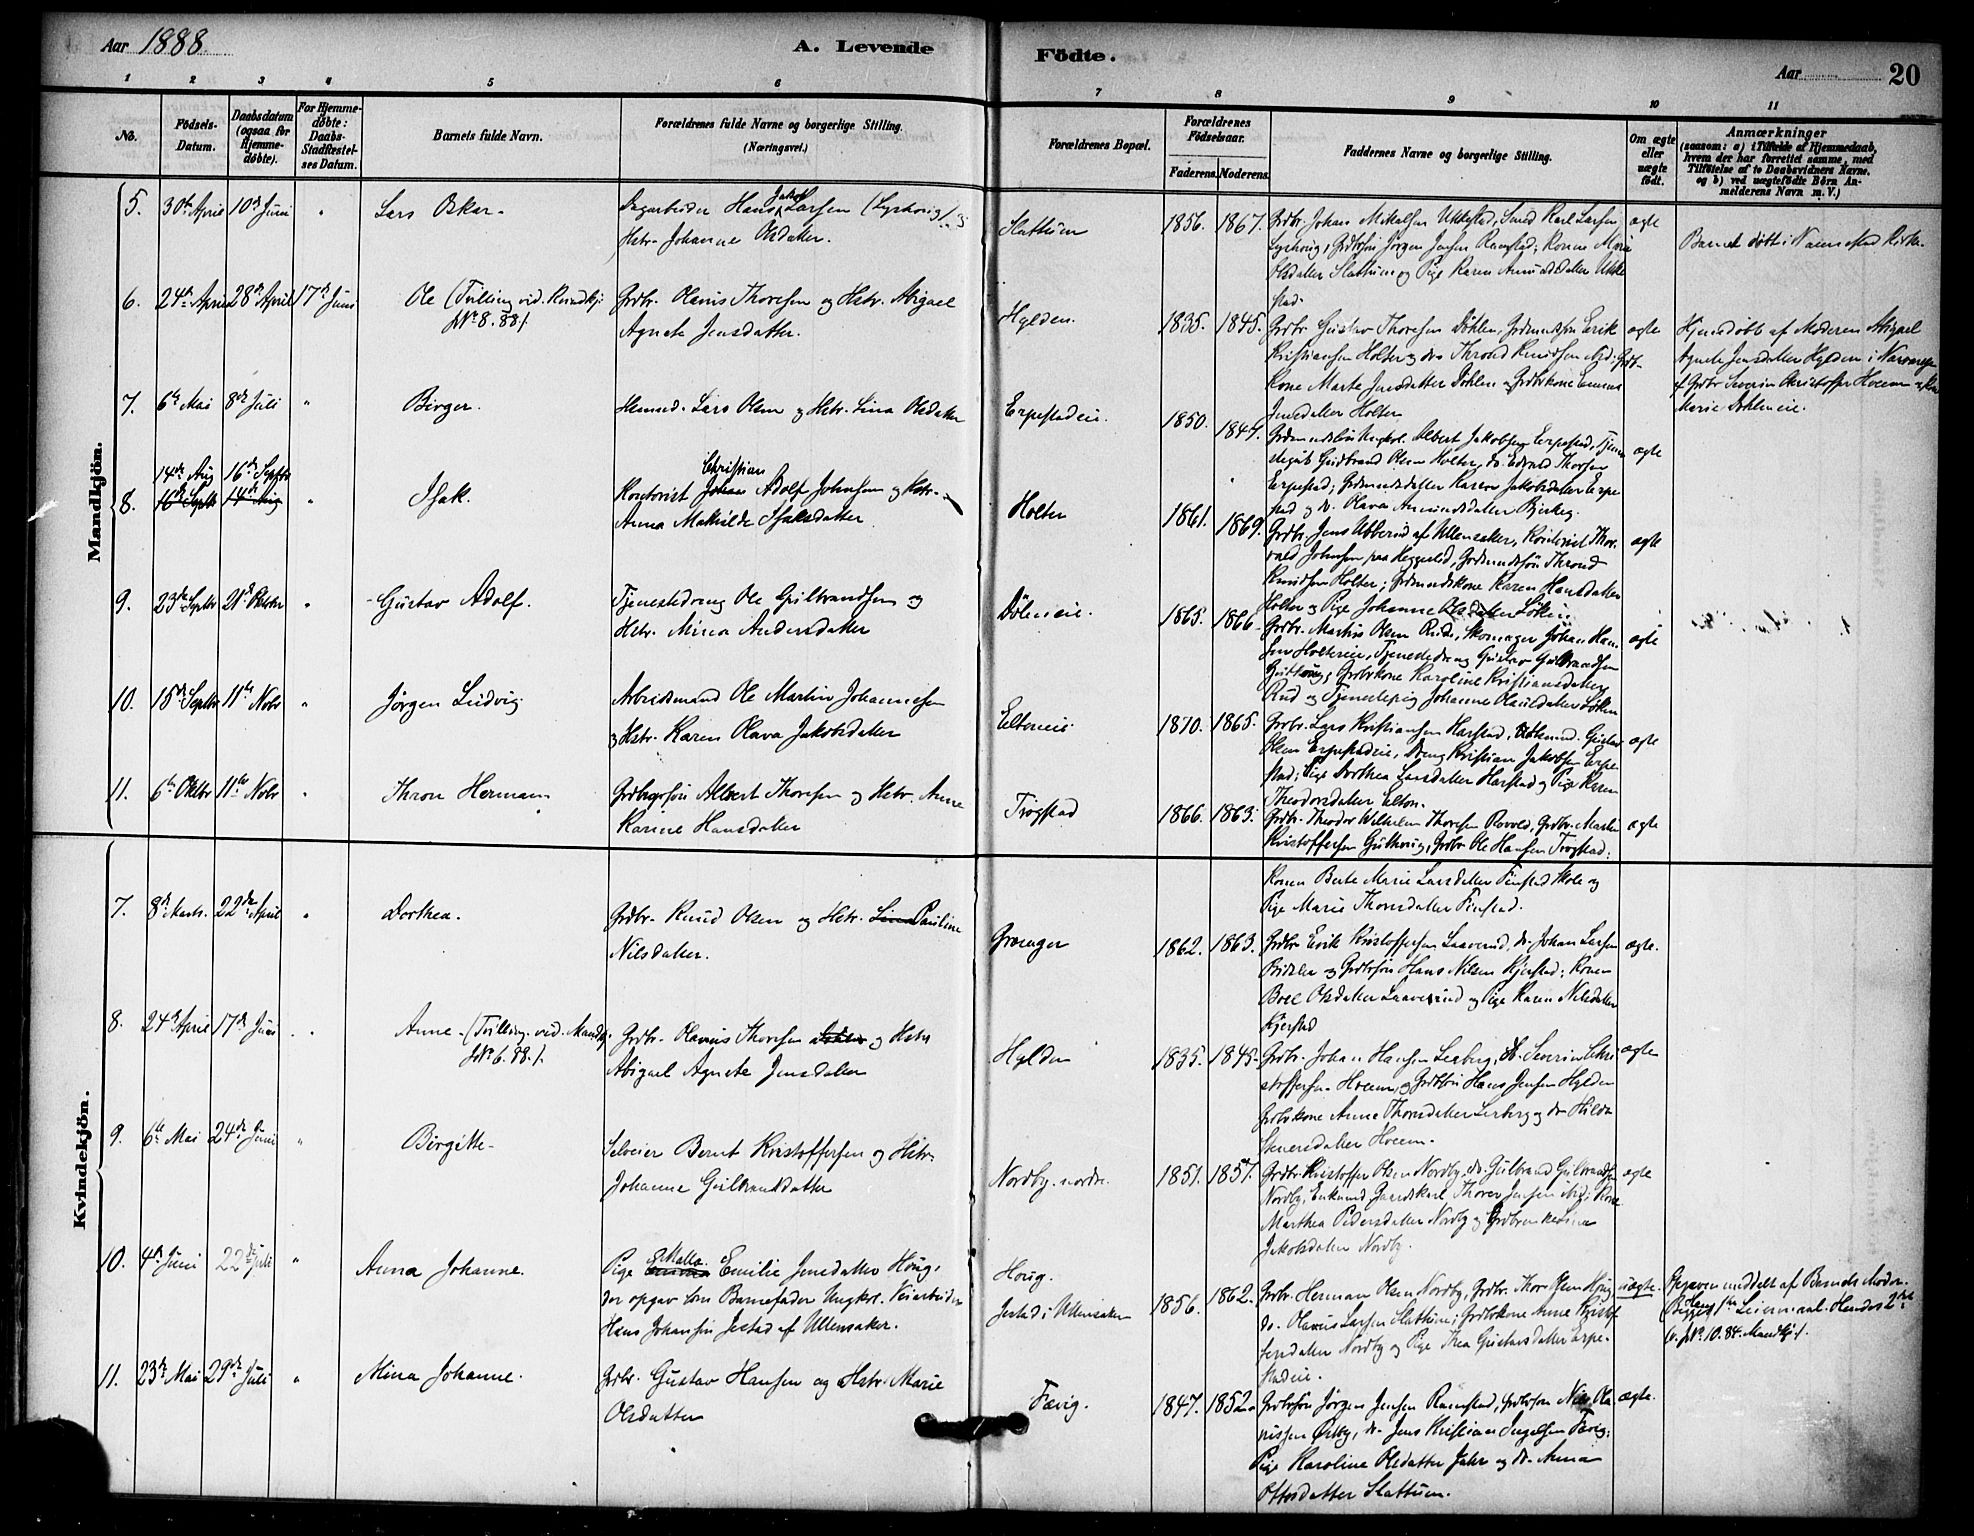 Aar 1888.
A. Levende
Födte.
Aar
20
1
2
3
4
5
6
7
8
9
10
11
No.
Födsels-
Datum.
Daabsdatum
(ogsaa for
Hjemme-
döbte).
For Hjemme-
döbte:
Daabs-
Stadfæstel-
ses Datum.
Barnets fulde Navn.
Forældrenes fulde Navne og borgerlige Stilling.
(Næringsvei.)
Forældrenes Bopæl.
Forældrenes
Födselsaar.
Faderens.
Moderens.
Faddernes Navne og borgerlige Stilling.
Om ægte
eller
uægte
födt.
Anmærkninger
(saasom: a) i Tilfælde af Hjemmedaab,
hvem der har forrettet samme, med
Tilföielse af to Daabsvidners Navne.
og b) ved uægtefödte Börn An-
melderens Navn m. V.)
Mandkjön.
5.
30te April
10de Juni
"
Lars Oskar.
Dagarbeider Hans Jakob Larsen
Hstr. Johanne Olsdatter.
Slattum
1856.
1867.
Grdbr. Johan Mikalsen Ukkestad, Smed Karl Larsen
Lyshoug, Grdbrsön Jörgen Jensen Ramstad; Konen Marie
Olsdatter Slattum og Pige Karen Amundsdatter Ukke
stad.
ægte
Barnet döbt i Nannestad Kirke.
6.
24de April
28de April
17de Juni
Ole (Tvilling vid. Kvindkj:
No 8. 88).
Grdbr. Olavus Thoresen og Hstr. Abigael
Agnete Jensdatter.
Hylden.
1835.
1845.
Grdbr. Gustav Thoresen Döhlen, Grdmandssön Erik
Kristiansen Holter og do Thrond Knudsen ibid; Grdb-
Kone Marte Jensdatter Döhlen og Grdbrkone Emma
Jensdatter Holter
ægte
Hjemdöbt af Moderen Abigael
Agnete Jensdatter Hylden i Nærværelse
af Grdbr Severin Christoffersen Hoeem og
Marie Döhleneie.
7.
6te Mai
8de Juli
"
Birger.
Husmd. Lars Olsen og Hstr. Lina Olsdatter
Erpestadeie.
1850.
1847.
Grdmandssön Ungkrl. Albert Jakobsen Erpestad, Tjene
stegut Gudbrand Olsen Holter, do. Edvard Thorsen
Erpestad; Grdmandsdatter Karen Jakobsdatter Erpe
stad og do. Olava Amundsdatter Bjerkeg.
ægte
8.
14de Aug
16de Septbr
16de Septbr
14de Aug
"
Isak.
Kontorist Christian Johan Adolf Johnsen og Hstr.
Anna Mathilde Isaksdatter
Holter
1861.
1869.
Grdbr. Jens Ubberud af Ullensaker, Kontorist Thor-
vald Johnsen paa Heggelid, Grdmandssön Thrond
Knudsen Holter; Grdmandskone Karen Hansdatter
Holter og Pige Johanne Olsdatter Löken
ægte
9.
23de Septbr
21de Oktober
"
Gustav Adolf.
Tjenestedreng Ole Gulbrandsen og
Hstr. Mina Andersdatter
Döleneie.
1865.
1866.
Grdbr. Martins Olsen Rud, Skomager Johan Han-
sen Holtereie, Tjenestedreng Gustav Gulbrandsen
Guthoug, Grdbrkone Karoline Kristiansdatter
Rud og Tjenestepige Johanne Olausdatter Löken
ægte
10.
15de Septbr
11te Novbr
"
Jörgen Ludvig
Arbeidsmand Ole Martin Johannesen
og Hstr. Karen Olava Jakobsdatter
Eltoneie
1870.
1865.
Grdbr. Lars Kristiansen Harstad, Husmand. Gustav
Olsen Erpestadeie, Dreng Kristian Jakobsen Erpe
stad; Pige Dorthea Larsdatter Harstad og Pige Karen
Theodorsdatter Elton.
ægte
11.
6te Oktbr
11te Novbr
"
Thron Herman
Grdbrgersön Albert Thoresen og Hstr. Anne
Karine Hansdatter
Trögstad
1866.
1863.
Grdbr. Theodor Wilhelm Thoresen Rovold, Grdbr. Martin
Kristoffersen Guthoug, Grdbr Ole Hansen Trögstad;
Konen Berte Marie Larsdatter Finstad Skole og
Pige Marie Thorsdatter Finstad.
ægte
Kvindekjön.
7.
8de Marts.
22de April
"
Dorthea.
Grdbr. Knud Olsen og Hstr. Lina Pauline
Nilsdatter.
Grænger
1862.
1863.
Grdbr. Erik Kristoffersen Laaverud, do. Johan Larsen
og Grdbrsön Hans Nilsen Kjerstad; Konen
Boel Olsdatter Laaverud og Pige Karen Nilsdatter
Kjerstad
ægte.
8.
24de April
17de Juni
"
Anne (Tvilling vid. Mandkj.
No 6. 88.).
Grdbr. Olavus Thoresen og Hstr
Abigael Agnete Jensdatter
Hylden
1835.
1845.
Grdbr. Johan Hansen Lerberg, do. Severin Chri
stoffersen Hoeem, og Grdbrsön Hans Jensen Hylden
Grdbrkone Anne Thorsdatter Lerberg og do Hilda
Hoeem.
ægte
9.
6te Mai
24de Juni
"
Birgitte
Selveier Bernt Kristoffersen og Hstr.
Johanne Gulbrandsdatter
Nordby. nordre.
1851.
1857.
Grdbr. Kristoffer Olsen Nordby, do. Gulbrand Gulbrandsen
Nordby, Enkemd. Gaardskarl Thorer Jensen ibid; Kone
Marthea Pedersdatter Nordby og Grdbrenke Lina
Jakobsdatter Nordby.
ægte
10.
4de Juni
22de Juli
"
Anna Johanne.
Pige Malla Emilie Jensdatter Houg,
der opgav som Barnefader Ungkrl. Veiarbeider
Hans Johansen Jestad af Ullensaker.
Houg.
Jestad i Ullensaker
1856.
1862.
Grdbr. Herman Olsen Nordby, Grdbr. Thor Olsen Houg
do. Olavus Larsen Slattum; Grdbrkone Anne Kristof
fersdatter Nordby og Pige Thea Gustavsdatter Erpe-
stadeie.
uægte.
Opgaven meddelt af Barnets Moder.
Begges 1ste Leiermaal. Hendes 2det
(v. No. 10. 84. Mandkj.).
11.
23de Mai
29de Juli
"
Mina Johanne.
Grdbr. Gustav Hansen og Hstr. Marie
Olsdatter
Fævig.
1847.
1852.
Grdbrsön Jörgen Jensen Ramstad, Grdbrsön Nils Ola
nissen Örby, do. Jens Kristian Ingelsen Fævig;
Pige Karoline Olsdatter Jahr og do. Anna
Ottosdatter Slattum.
ægte.